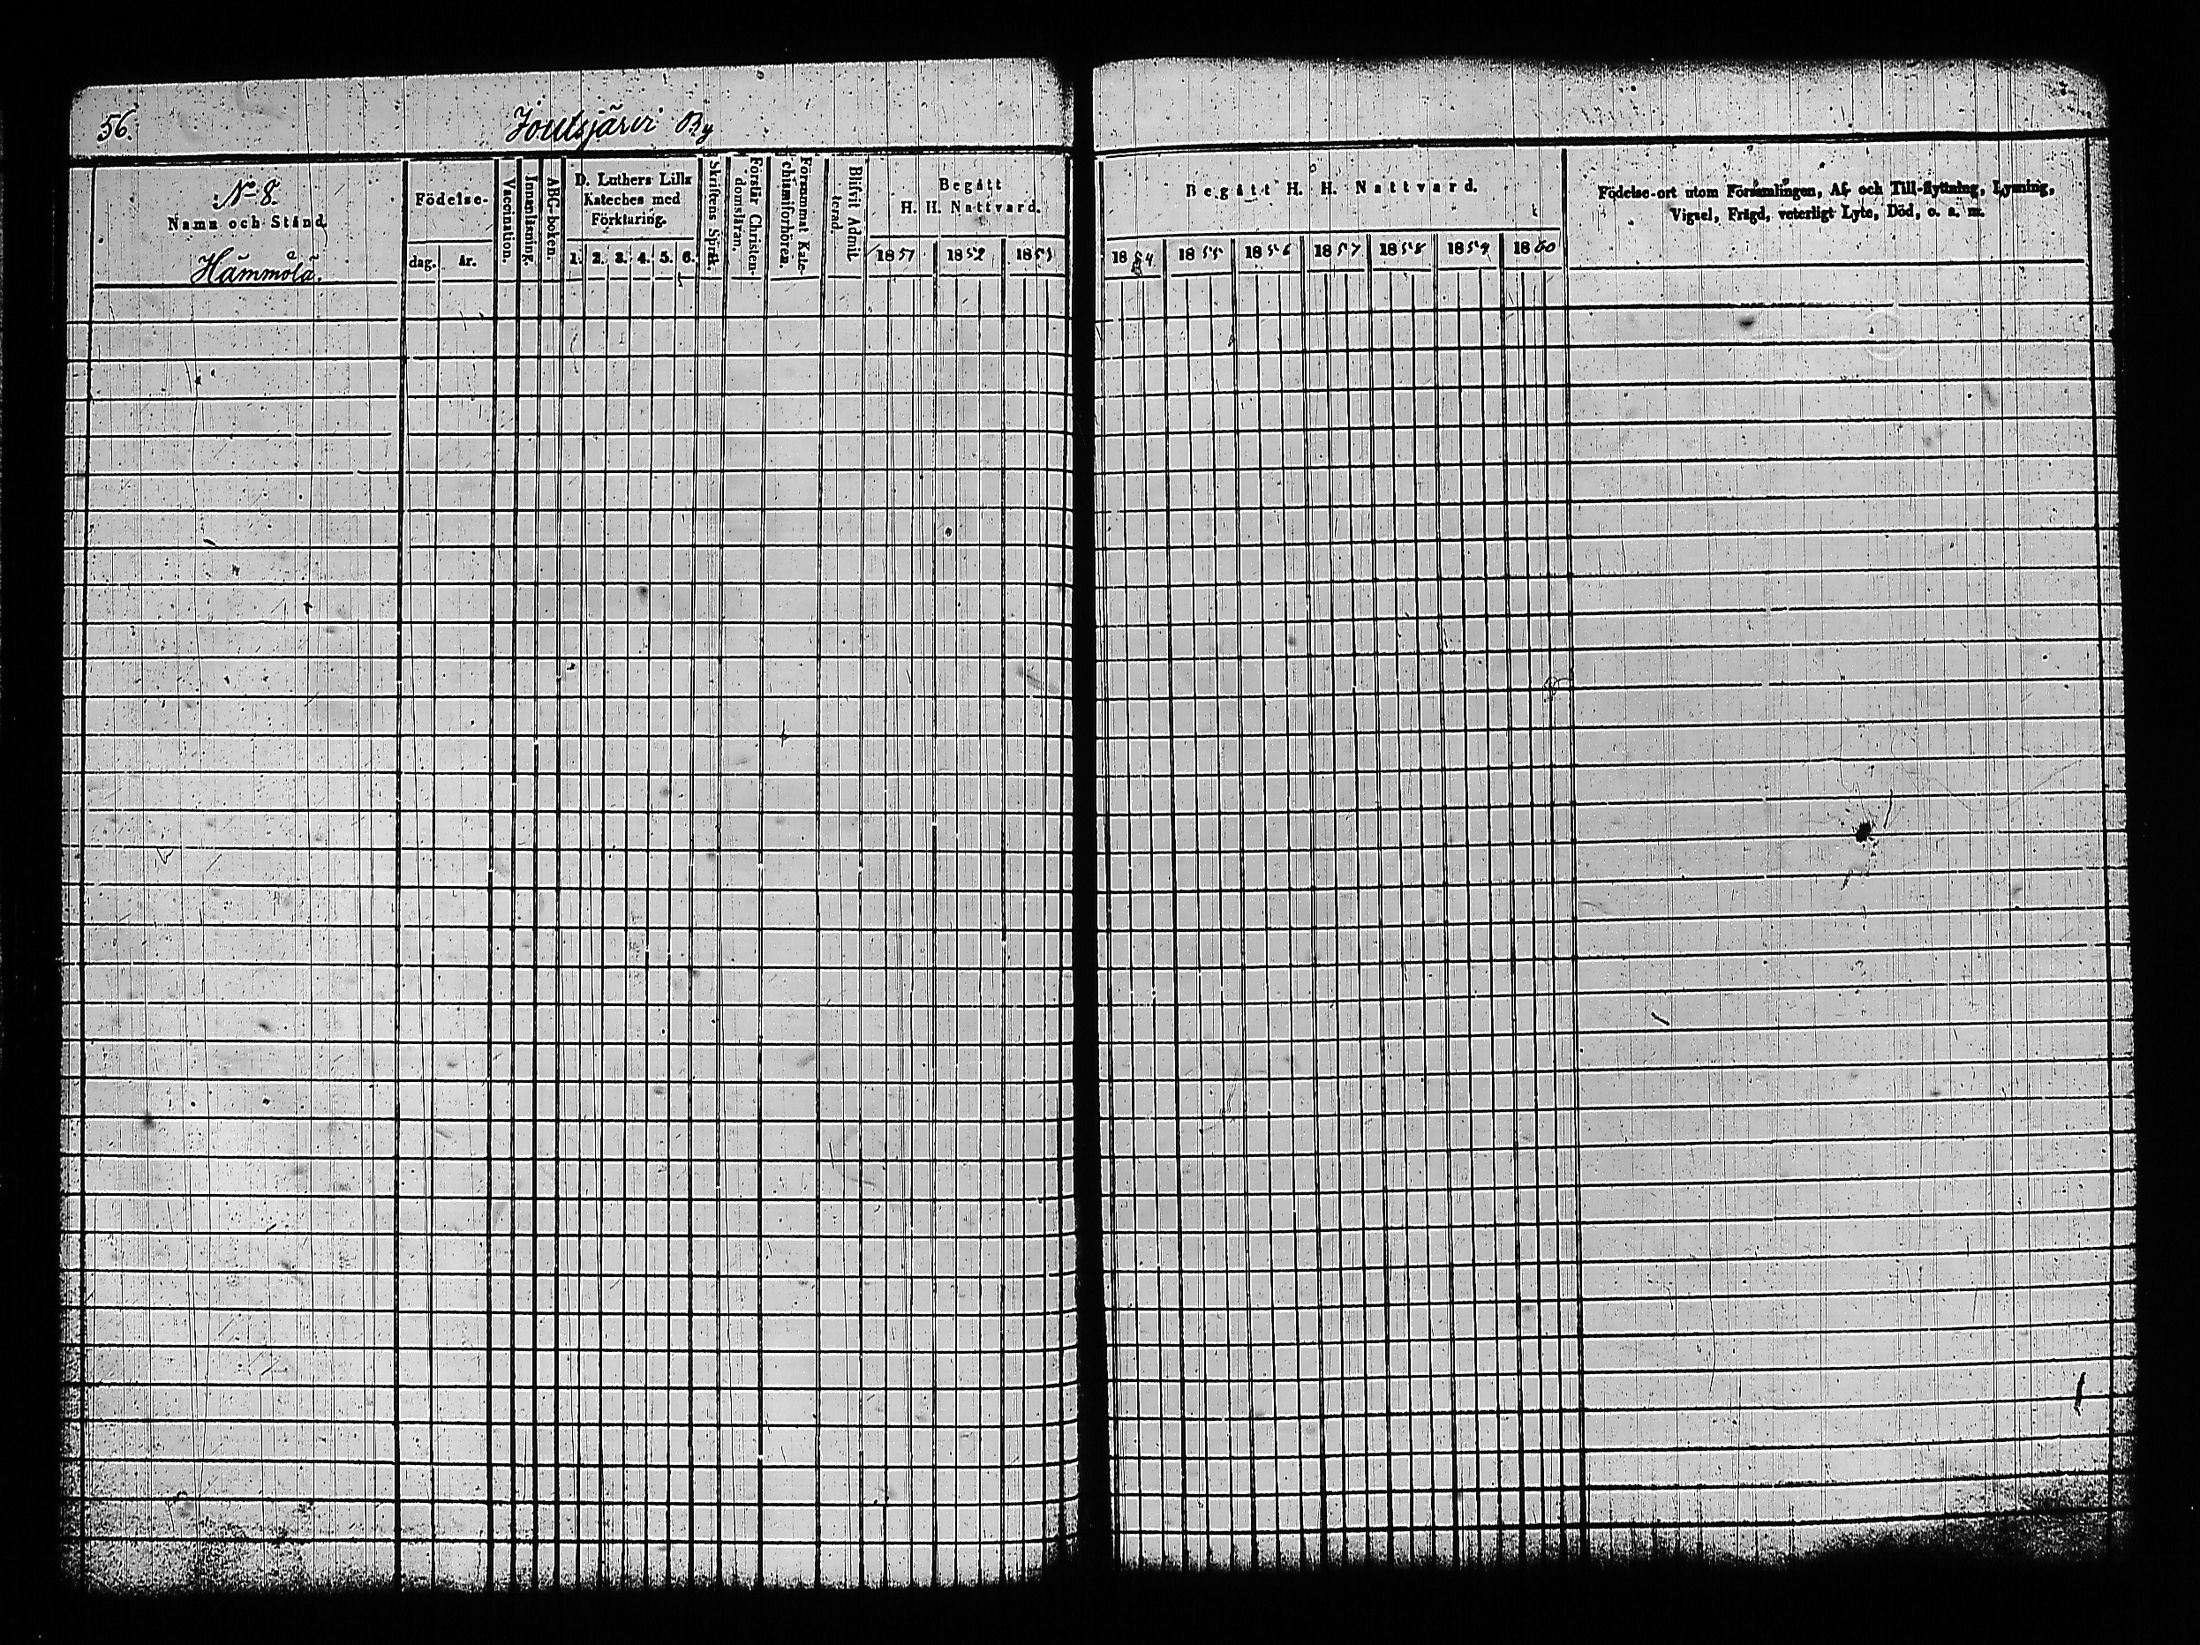 56.
Joutsjärvi By
No 8.
Namn och Stånd
Hämmölä.
Födelse-
dag.
år.
Vaccination.
Innanläsning.
ABC-boken.
D. Luthers Lilla
Kateches med
Förklaring.
1. 2. 3. 4. 5. 6.
Skriftens Språk.
Förstår Christen-
domsläran.
Försummat Kate-
chismiförhören.
Blifvit Admit-
terad.
Begått
H. H. Nattvard.
1851 1852 1853
Begått H. H. Nattvard.
1854 1855 1856 1857 1858 1859 1860
Födelse-ort utom Församlingen, Af- och Till-flyttning, Lysning,
Vigsel, Frägd, veterligt Lyte, Död, o. s. m.